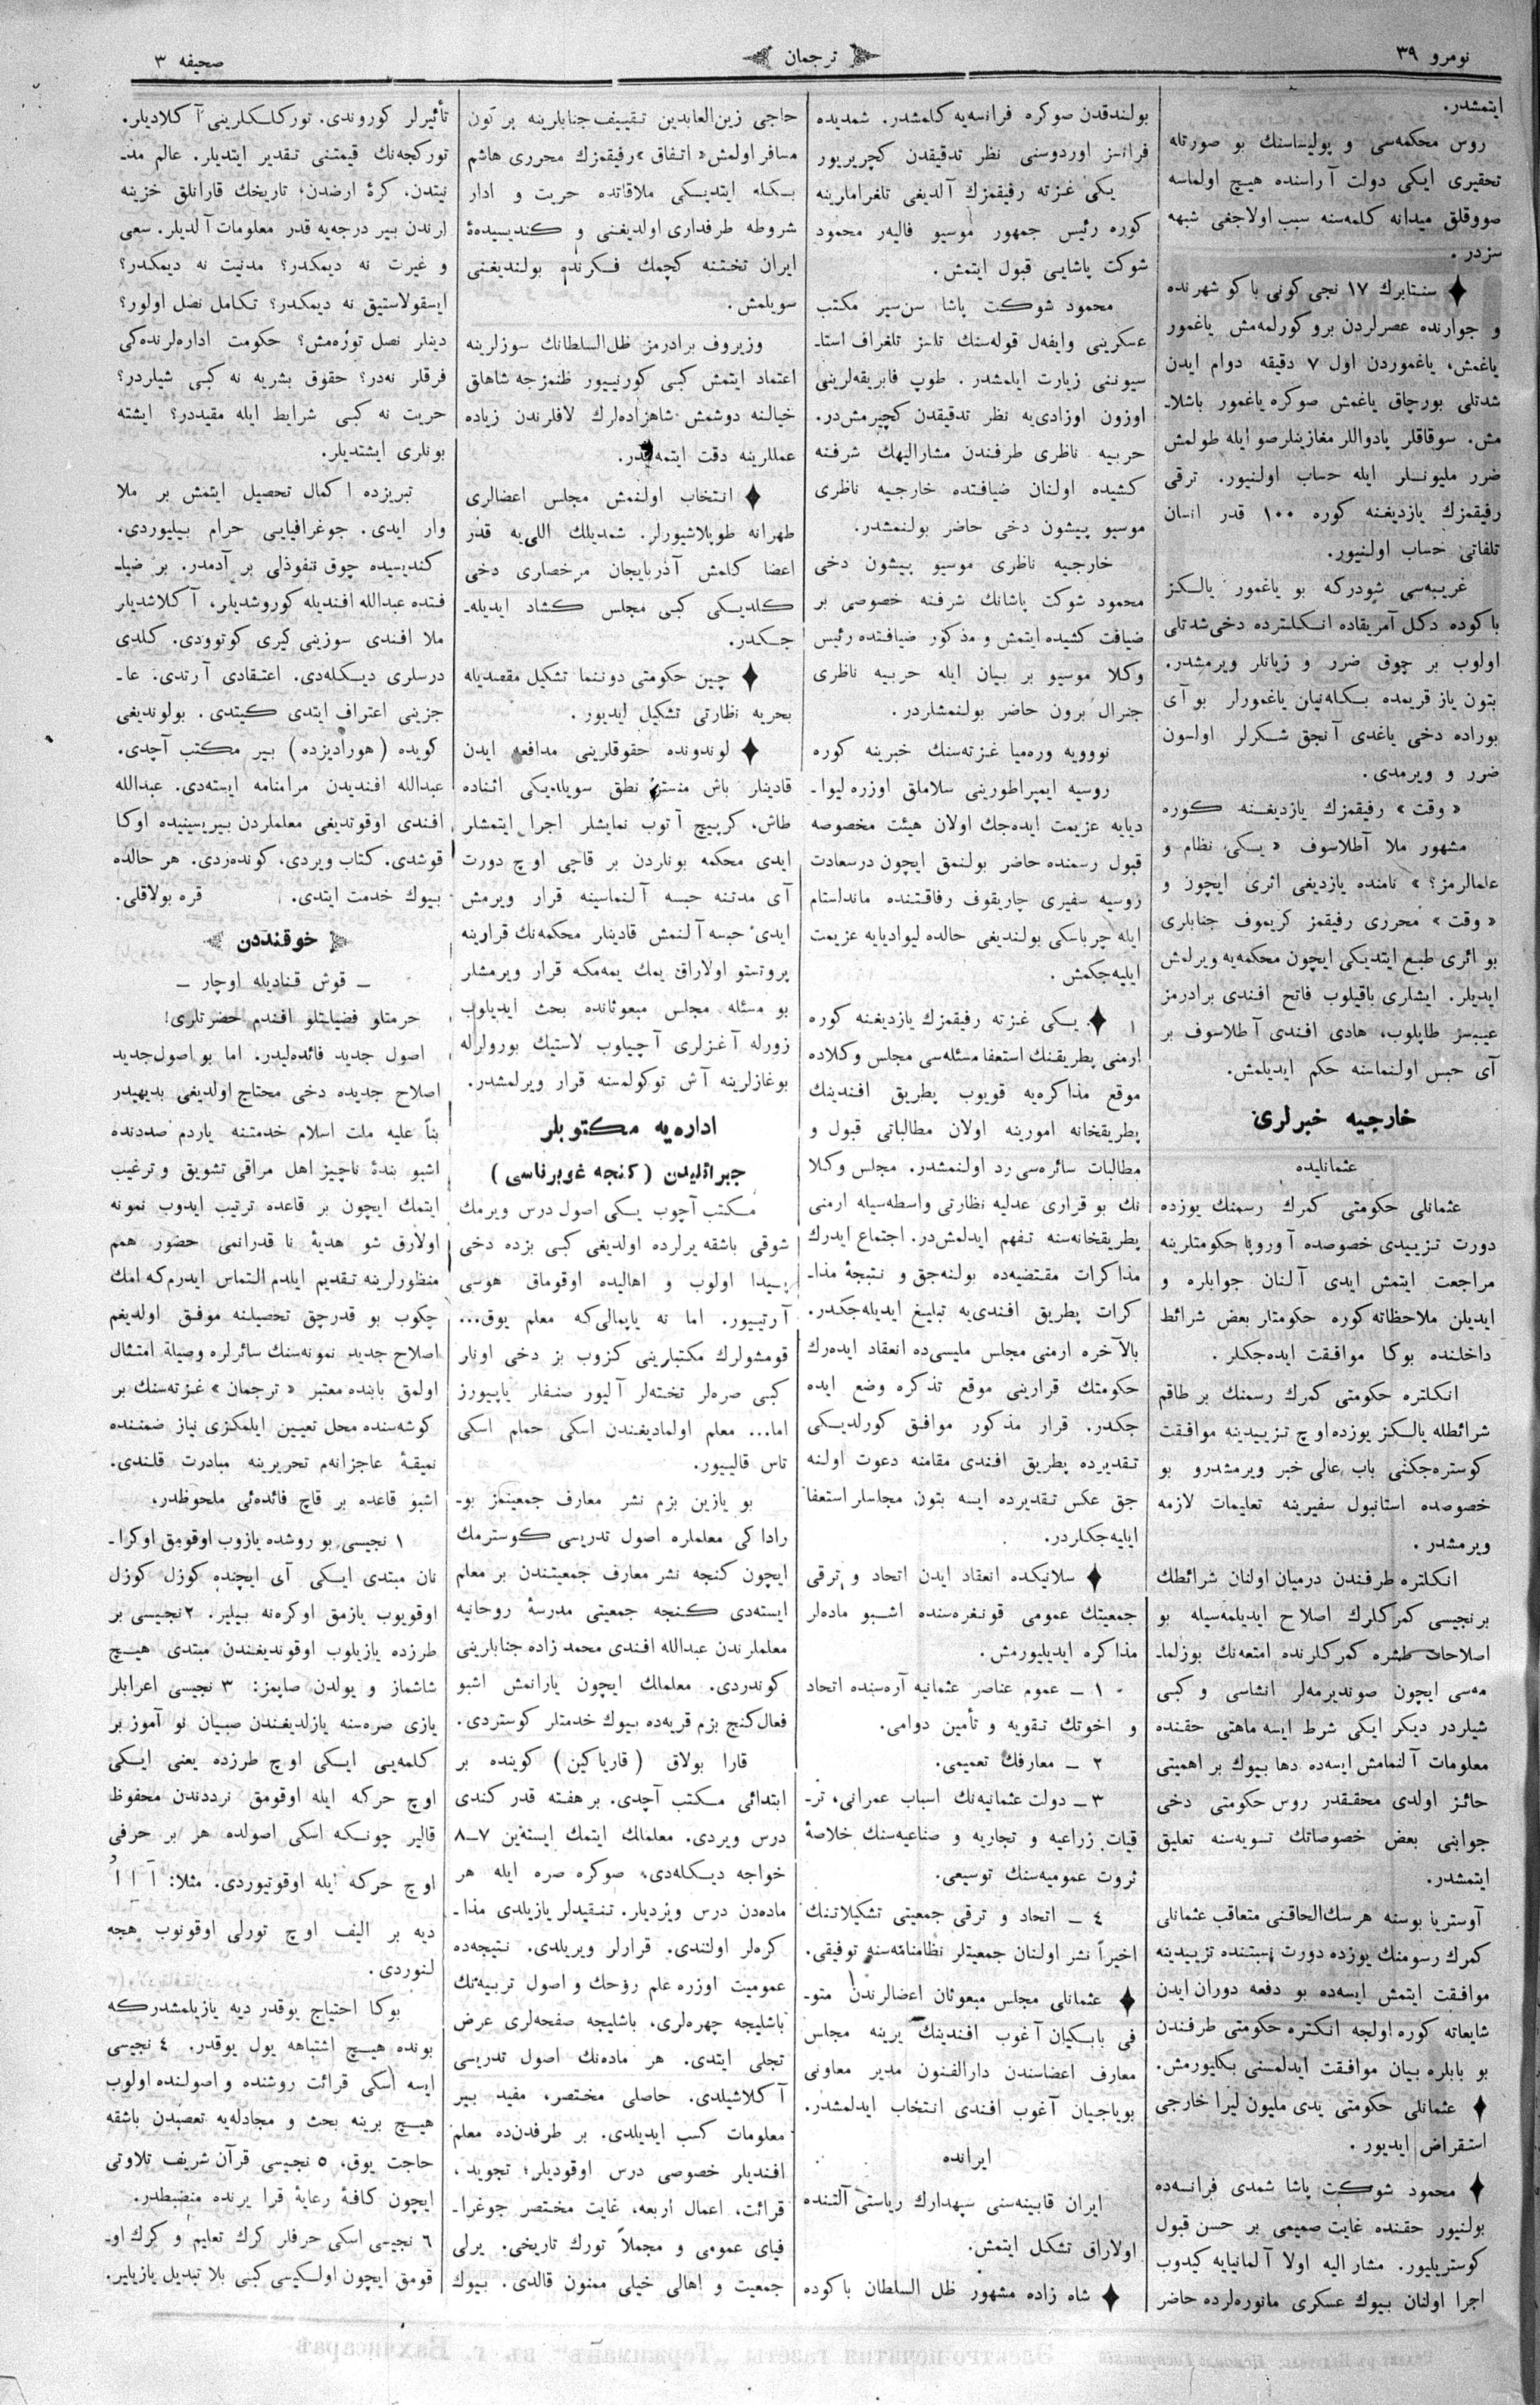 نومرو ٣٩
ترجمان
صحیفه ٣
ایتمشدر.
روس محکمه‌سی و پولیساسنك بو صورتله
تحقیری ایکی دولت آراسنده هیچ اولماسه
صووقلق میدانه کلمه‌سنه سبب اولاجغی شبهه
سزدر.
سنتابرك ١٧ نجی کونی باکو شهرنده
و جوارنده عصرلردن برو کورلمه‌مش یاغمور
یاغمش، یاغموردن اول ٧ دقیقه دوام ایدن
شدتلی بورچاق یاغمش صوکره یاغمور باشلا‌ـ
مش. سوقاقلر پادواللر مغازینلر صو ایله طولمش
ضرر ملیونـلر ایله حساب اولنیور. ترقی
رفیقمزك یازدیغنه کوره ١٠٠ قدر انسان
تلفاتی حساب اولنیور.
غریبه‌سی شودرکه بو یاغمور یالکز
باکوده دکل آمریقاده انکلترده دخی شدتلی
اولوب بر چوق ضرر و زیانلر ویرمشدر.
بتون یاز قریمده بکله‌نیلن یاغمورلر بو آی
بوراده دخی یاغدی آنجق شکرلر اولسون
ضرر و ویرمدی.
« وقت » رفیقمزك یازدیغنه کوره
مشهور ملا آطلاسوف « یکی نظام و
علمالرمز؟ » نامنده یازدیغی اثری ایچون و
« وقت » محرری رفیقمز کریموف جنابلری
بو اثری طبع ایتدیکی ایچون محکمه‌یه ویرلمش
ایدیلر. ایشلری باقیلوب فاتح افندی برادرمز
عیبسز طاپلوب، هادی افندی آطلاسوف بر
آی حبس اولنماسنه حکم ایدیلمش.
خارجیه خبرلری
عثمانلیده
عثمانلی حکومتی کمرك رسمنك یوزده
دورت تزییدی خصوصده آوروپا حکومتلرینه
مراجعت ایتمش ایدی آلنان جوابلره و
ایدیلن ملاحظاته کوره حکومتلر بعض شرائط
داخلنده بوکا موافقت ایده‌جکلر.
انکلتره حکومتی کمرك رسمنك بر طاقم
شرائطله یالکز یوزده اوچ تزییدینه موافقت
کوستره‌جکنی باب عالی خبر ویرمشدرو بو
خصوصده استانبول سفیرینه تعلیمات لازمه
ویرمشدر.
انکلتره طرفندن درمیان اولنان شرائطك
برنجیسی کمرکلرك اصلاح ایدیلمه‌سیله بو
اصلاحات طشره کمرکلرنده امتعه‌نك بوزلما‌ـ
مه‌سی ایچون صوندیرمه‌لر انشاسی و کبی
شیلردر دیکر ایکی شرط ایسه ماهتی حقنده
معلومات آلنمامش ایسه‌ده دها بیوك بر اهمیتی
حائز اولدی محققدر روس حکومتی دخی
جوابنی بعض خصوصاتك تسویه‌سنه تعلیق
ایتمشدر.
آوستریا بوسنه هرسك‌الحاقنی متعاقب عثمانلی
کمرك رسومنك یوزده دورت نسبتنده تزییدینه
موافقت ایتمش ایسه‌ده بو دفعه دوران ایدن
شایعاته کوره اولجه انکتره حکومتی طرفندن
بو بابلره بیان موافقت ایدلمسنی بکلیورمش.
عثمانلی حکومتی یدی ملیون لیرا خارجی
استقراض ایدیور.
محمود شوکت پاشا شمدی فرانسه‌ده
بولنیور حقنده غایت صمیمی بر حسن قبول
کوستریلیور. مشار الیه اولا آلمانیایه کیدوب
اجرا اولنان بیوك عسکری مانوره‌لرده حاضر
بولندقدن صوکره فرانسه‌یه کلمشدر. شمدیده
فرانسز اوردوسنی نظر تدقیقدن کچیریور
یکی غزته رفیقمزك آلدیغی تلغرامارینه
کوره رئیس جمهور موسیو فالیه‌ر محمود
شوکت پاشایی قبول ایتمش.
محمود شوکت پاشا سن‌سیر مکتب
عسکرینی وایفه‌ل قوله‌سنك تلسز تلغراف استا‌ـ
سیوننی زیارت ایلمشدر. طوپ فابریقه‌لرینی
اوزون اوزادی‌یه نظر تدقیقدن کچیرمش‌در.
حربیه ناظری طرفندن مشارالیهك شرفنه
کشیده اولنان ضیافتده خارجیه ناظری
موسیو پیشون دخی حاضر بولنمشدر.
خارجیه ناظری موسیو پیشون دخی
محمود شوکت پاشانك شرفنه خصوصی بر
ضیافت کشیده ایتمش و مذکور ضیافتده رئیس
وکلا موسیو بریان ایله حربیه ناظری
جنرال برون حاضر بولنمشلردر.
نوویه وره‌میا غزته‌سنك خبرینه کوره
روسیه ایمپراطورینی سلاملق اوزره لیوا‌ـ
دیایه عزیمت ایده‌جك اولان هیئت مخصوصه
قبول رسمنده حاضر بولنمق ایچون درسعادت
روسیه سفیری چاریقوف رفاقتنده ماندلستام
ایله چرباسکی بولندیغی حالده لیوادیایه عزیمت
ایلیه‌جکمش.
یکی غزته رفیقمزك یازدیغنه کوره
ارمنی پطریقنك استعفا مسئله‌سی مجلس وکلاده
موقع مذاکره‌یه قویوب پطریق افندینك
پطریقخانه امورینه اولان مطالباتی قبول و
مطالبات سائره‌سی رد اولنمشدر. مجلس وکلا
نك بو قراری عدلیه نظارتی واسطه‌سیله ارمنی
پطریقخانه‌سنه تفهم ایدلمش‌در. اجتماع ایدرك
مذاکرات مقتضیه‌ده بولنه‌جق و نتیجۀ مذا‌ـ
کرات پطریق افندی‌یه تبلیغ ایدیله‌جکدر.
بالآخره ارمنی مجلس ملیسی‌ده انعقاد ایده‌رك
حکومتك قرارینی موقع تذکره وضع ایده
جکدر. قرار مذکور موافق کورلدیکی
تقدیرده پطریق افندی مقامنه دعوت اولنه
جق عکس تقدیرده ایسه بتون مجلسلر استعفا
ایلیه‌جکلردر.
سلانیکده انعقاد ایدن اتحاد و ترقی
جمعیتك عمومی قونغره‌سنده اشبو ماده‌لر
مذاکره ایدیلیورمش.
١ ـ عموم عناصر عثمانیه آره‌سنده اتحاد
و اخوتك تقویه و تأمین دوامی.
٢ ـ معارفك تعمیمی.
٣ ـ دولت عثمانیه‌نك اسباب عمرانی، تر‌ـ
قیات زراعیه و تجاریه و صناعیه‌سنك خلاصۀ
ثروت عمومیه‌سنك توسیعی.
٤ ـ اتحاد و ترقی جمعیتی تشکیلاتنك
اخیراً نشر اولنان جمعیتلر نظامنامه‌سنه توفیقی.
عثمانلی مجلس مبعوثان اعضالرندن متو‌ـ
فی بابکیان آغوب افندینك یرینه مجلس
معارف اعضاسندن دارالفنون مدیر معاونی
بویاجیان آغوب افندی انتخاب ایدلمشدر.
ایرانده
ایران قابینه‌سنی سپهدارك ریاستی آلتنده
اولاراق تشکل ایتمش.
شاه زاده مشهور ظل السلطان باکوده
حاجی زین‌العابدین تقییف جنابلرینه بر کون
مسافر اولمش « اتفاق » رفیقمزك محرری هاشم
بکله ایتدیکی ملاقاتده حریت و ادار
شروطه طرفداری اولدیغنی و کندیسیده‌ۀ
ایران تختنه کچمك فکرنده بولندیغنی
سویلمش.
وزیروف برادرمز ظل‌السلطانك سوزلرینه
اعتماد ایتمش کبی کورنیور ظنمزجه شاهلق
خیالنه دوشمش شاهزاده‌لرك لافلرندن زیاده
عمللرینه دقت ایتمه‌لیدر.
انتخاب اولنمش مجلس اعضالری
طهرانه طوپلاشیورلر. شمدیلك اللی‌یه قدر
اعضا کلمش آذربایجان مرخصاری دخی
کلدیکی کبی مجلس کشاد ایدیله‌ـ
جکدر.
چین حکومتی دوننما تشکیل مقصدیله
بحریه نظارتی تشکیل ایدیور.
لوندونده حقوقلرینی مدافعه ایدن
قادینلر باش منستر نطق سویلدیکی اثناده
طاش، کرپیچ آتوب نمایشلر اجرا ایتمشلر
ایدی محکمه بوناردن بر قاچی اوچ دورت
آی مدتنه حبسه آلنماسینه قرار ویرمش
ایدی. حبسه آلنمش قادینلر محکمه‌نك قرارینه
پروتستو اولاراق یمك یمه‌مکه قرار ویرمشلر
بو مسئله مجلس مبعوثانده بحث ایدیلوب
زورله آغزلری آچیلوب لاستیك بورولرله
بوغازلرینه آش توکولمسنه قرار ویرلمشدر.
اداره‌یه مکتوبلر
جبرائلیدن (کنجه غوبرناسی)
مکتب آچوب یکی اصول درس ویرمك
شوقی باشقه یرلرده اولدیغی کبی بزده دخی
پیدا اولوب و اهالیده اوقوماق هوسی
آرتییور. اما نه یاپمالی‌که معلم یوق...
قومشولرك مکتبلرینی کزوب بز دخی اونلر
کبی صره‌لر تخته‌لر آلیور صنفلر یاپیورز
اما... معلم اولمادیغندن اسکی حمام اسکی
تاس قالییور.
بو یازین بزم نشر معارف جمعیتمز بو‌ـ
رادا کی معلملره اصول تدریسی کوسترمك
ایچون کنجه نشر معارف جمعیتندن بر معلم
ایسته‌دی کنجه جمعیتی مدرسۀ روحانیه
معلملرندن عبدالله افندی محمد زاده جنابلرینی
کوندردی. معلملك ایچون یارانمش اشبو
فعال کنج بزم قریه‌ده بیوك خدمتلر کوستردی.
قارا بولاق (قاریاکین) کوینده بر
ابتدائی مکتب آچدی. بر هفته قدر کندی
درس ویردی. معلملك ایتمك ایسته‌ین ٧ـ٨
خواجه دیکله‌دی، صوکره صره ایله هر
ماده‌دن درس ویردیلر. تنقیدلر یازیلدی مذا‌ـ
کره‌لر اولندی. قرارلر ویریلدی. نتیجه‌ده
عمومیت اوزره علم روحك و اصول تربیه‌نك
باشلیجه چهره‌لری، باشلیجه صفحه‌لری عرض
تجلی ایتدی. هر ماده‌نك اصول تدریسی
آکلاشیلدی. حاصلی مختصر، مفید بیر
معلومات کسب ایدیلدی. بر طرفدن‌ده معلم
افندیلر خصوصی درس اوقودیلر؛ تجوید،
قرائت، اعمال اربعه، غایت مختصر جوغرا‌ـ
فیای عمومی و مجملاً تورك تاریخی. یرلی
جمعیت و اهالی خیلی ممنون قالدی. بیوك
تأثیرلر کوروندی. تورکلکلرینی آکلادیلر.
تورکجه‌نك قیمتنی تقدیر ایتدیلر. عالم مد‌ـ
نیتدن، کرۀ ارضدن؛ تاریخك قارانلق خزینه
لرندن بیر درجه‌یه قدر معلومات آلدیلر. سعی
و غیرت نه دیمکدر؟ مدنیت نه دیمکدر؟
ایسقولاستیق نه دیمکدر؟ تکامل نصل اولور؟
دینلر نصل توزه‌مش؟ حکومت اداره‌لرنده‌کی
فرقلر نه‌در؟ حقوق بشریه نه کبی شیلردر؟
حریت نه کبی شرایط ایله مقیددر؟ ایشته
بونلری ایشتدیلر.
تبریزده اکمال تحصیل ایتمش بر ملا
وار ایدی. جوغرافیایی حرام بیلیوردی.
کندیسیده چوق تنفوذلی بر آدمدر. بر ضیا‌ـ
فتده عبدالله افندیله کوروشدیلر، آکلاشدیلر
ملا افندی سوزینی کیری کوتوردی. کلدی
درسلری دیکله‌دی. اعتقادی آرتدی. عا‌ـ
جزینی اعتراف ایتدی کیتدی. بولوندیغی
کویده (هورادیزده) بیر مکتب آچدی.
عبدالله افندیدن مرامنامه ایسته‌دی. عبدالله
افندی اوقوتدیغی معلملردن بیریسینیده اوکا
قوشدی. کتاب ویردی، کونده‌ردی. هر حالده
بیوك خدمت ایتدی. قره بولاقلی.
خوقنددن
ـ قوش قنادیله اوچار ـ
حرمتلو فضیلتلو افندم حضرتلری!
اصول جدید فائده‌لیدر. اما بو اصول‌جدید
اصلاح جدیده دخی محتاج اولدیغی بدیهیدر
بناً علیه ملت اسلام خدمتنه یاردم صددنده
اشبو بندۀ ناچیز اهل مراقی تشویق و ترغیب
ایتمك ایچون بر قاعده ترتیب ایدوب نمونه
اولارق شو هدیۀ نا قدرانمی حضور همم
منظورلرینه تقدیم ایلدم التماس ایدرم‌که امك
چکوب بو قدرچق تحصیلنه موفق اولدیغم
اصلاح جدید نمونه‌سنك سائرلره وصیلۀ امتثال
اولمق بابنده معتبر « ترجمان » غزته‌سنك بر
کوشه‌سنده محل تعیین ایلمکزی نیاز ضمننده
نمیقۀ عاجزانه‌م تحریرینه مبادرت قلندی.
اشبو قاعده بر قاچ فائده‌ئی ملحوظدر.
١ نجیسی بو روشده یازوب اوقومق اوکرا‌ـ
نان مبتدی ایکی آی ایچنده کوزل کوزل
اوقویوب یازمق اوکره‌نه بیلیر. ٢ نجیسی بر
طرزده یازیلوب اوقوندیغندن مبتدی هیچ
شاشماز و یولدن صاپمز: ٣ نجیسی اعرابلر
یازی صره‌سنه یازلدیغندن صبیان نو آموز بر
کلمه‌یی ایکی اوچ طرزده یعنی ایکی
اوچ حرکه ایله اوقومق نرددندن محفوظ
قالیر چونکه اسکی اصولده هر بر حرفی
اوچ حرکه ایله اوقوتیوردی. مثلا: اَ اِ اُ
دیه بر الیف اوچ تورلی اوقونوب هجه
لنوردی.
بوکا احتیاج یوقدر دیه یازیلمشدرکه
بونده هیچ اشتباهه یول یوقدر. ٤ نجیسی
ایسه اسکی قرائت روشنده و اصولنده اولوب
هیچ برینه بحث و مجادله‌یه تعصبدن باشقه
حاجت یوق، ٥ نجیسی قرآن شریف تلاوتی
ایچون کافۀ رعایۀ قرا یرنده منضبطدر.
٦ نجیسی اسکی حرفلر کرك تعلیم و کرك او‌ـ
قومق ایچون اولکیسی کبی بلا تبدیل یازیلیر.